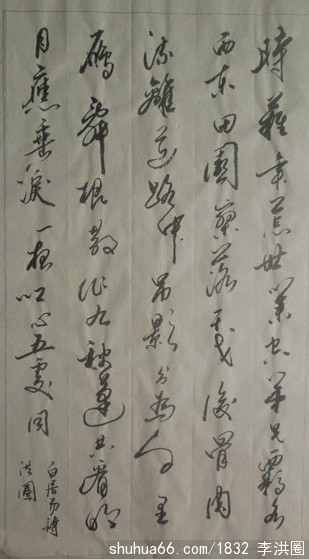 時難年荒世業空弟兄羈旅各
西東田園寥落干戈後骨肉
流離道路中吊影分為千里
雁辭根散作九秋蓬共看明
月應垂淚一夜鄉心五處同
白居易詩
洪圈
shuhua66.com/1832 李洪圈